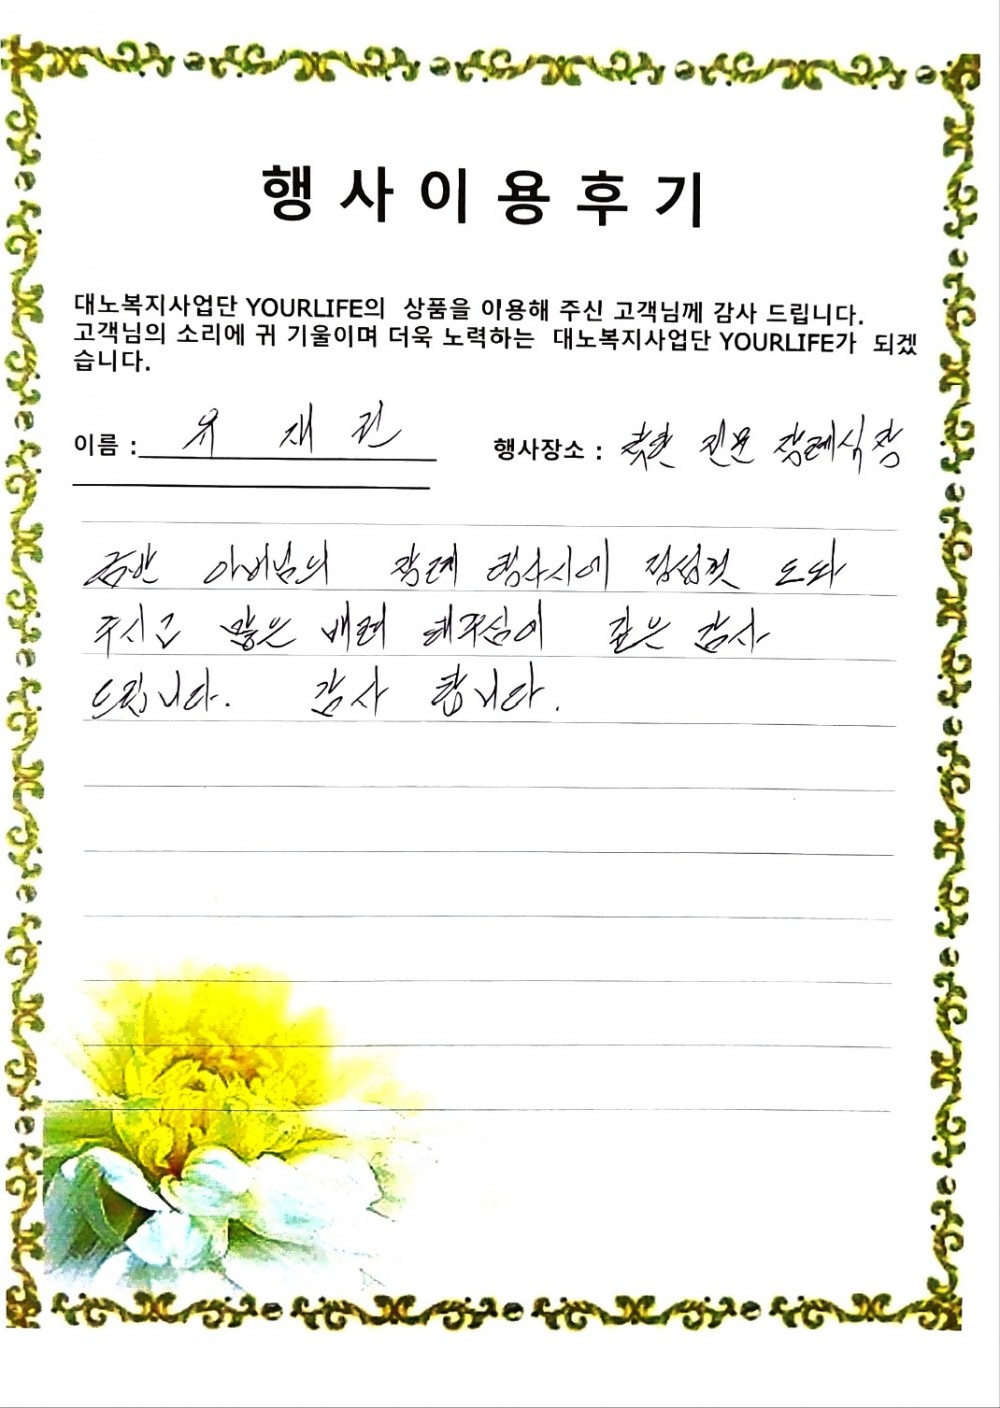 행사이용후기
대노복지사업단 YOURLIFE의 상품을 이용해 주신 고객님께 감사 드립니다.
고객님의 소리에 귀 기울이며 더욱 노력하는 대노복지사업단 YOURLIFE가 되겠
습니다.
이름 : 유 재 권 행사장소 : 착한 전문 장례식장
금번 아버님의 장례 행사시에 정성껏 도와
주시고 많은 배려 해주심에 깊은 감사
드립니다. 감사 합니다.